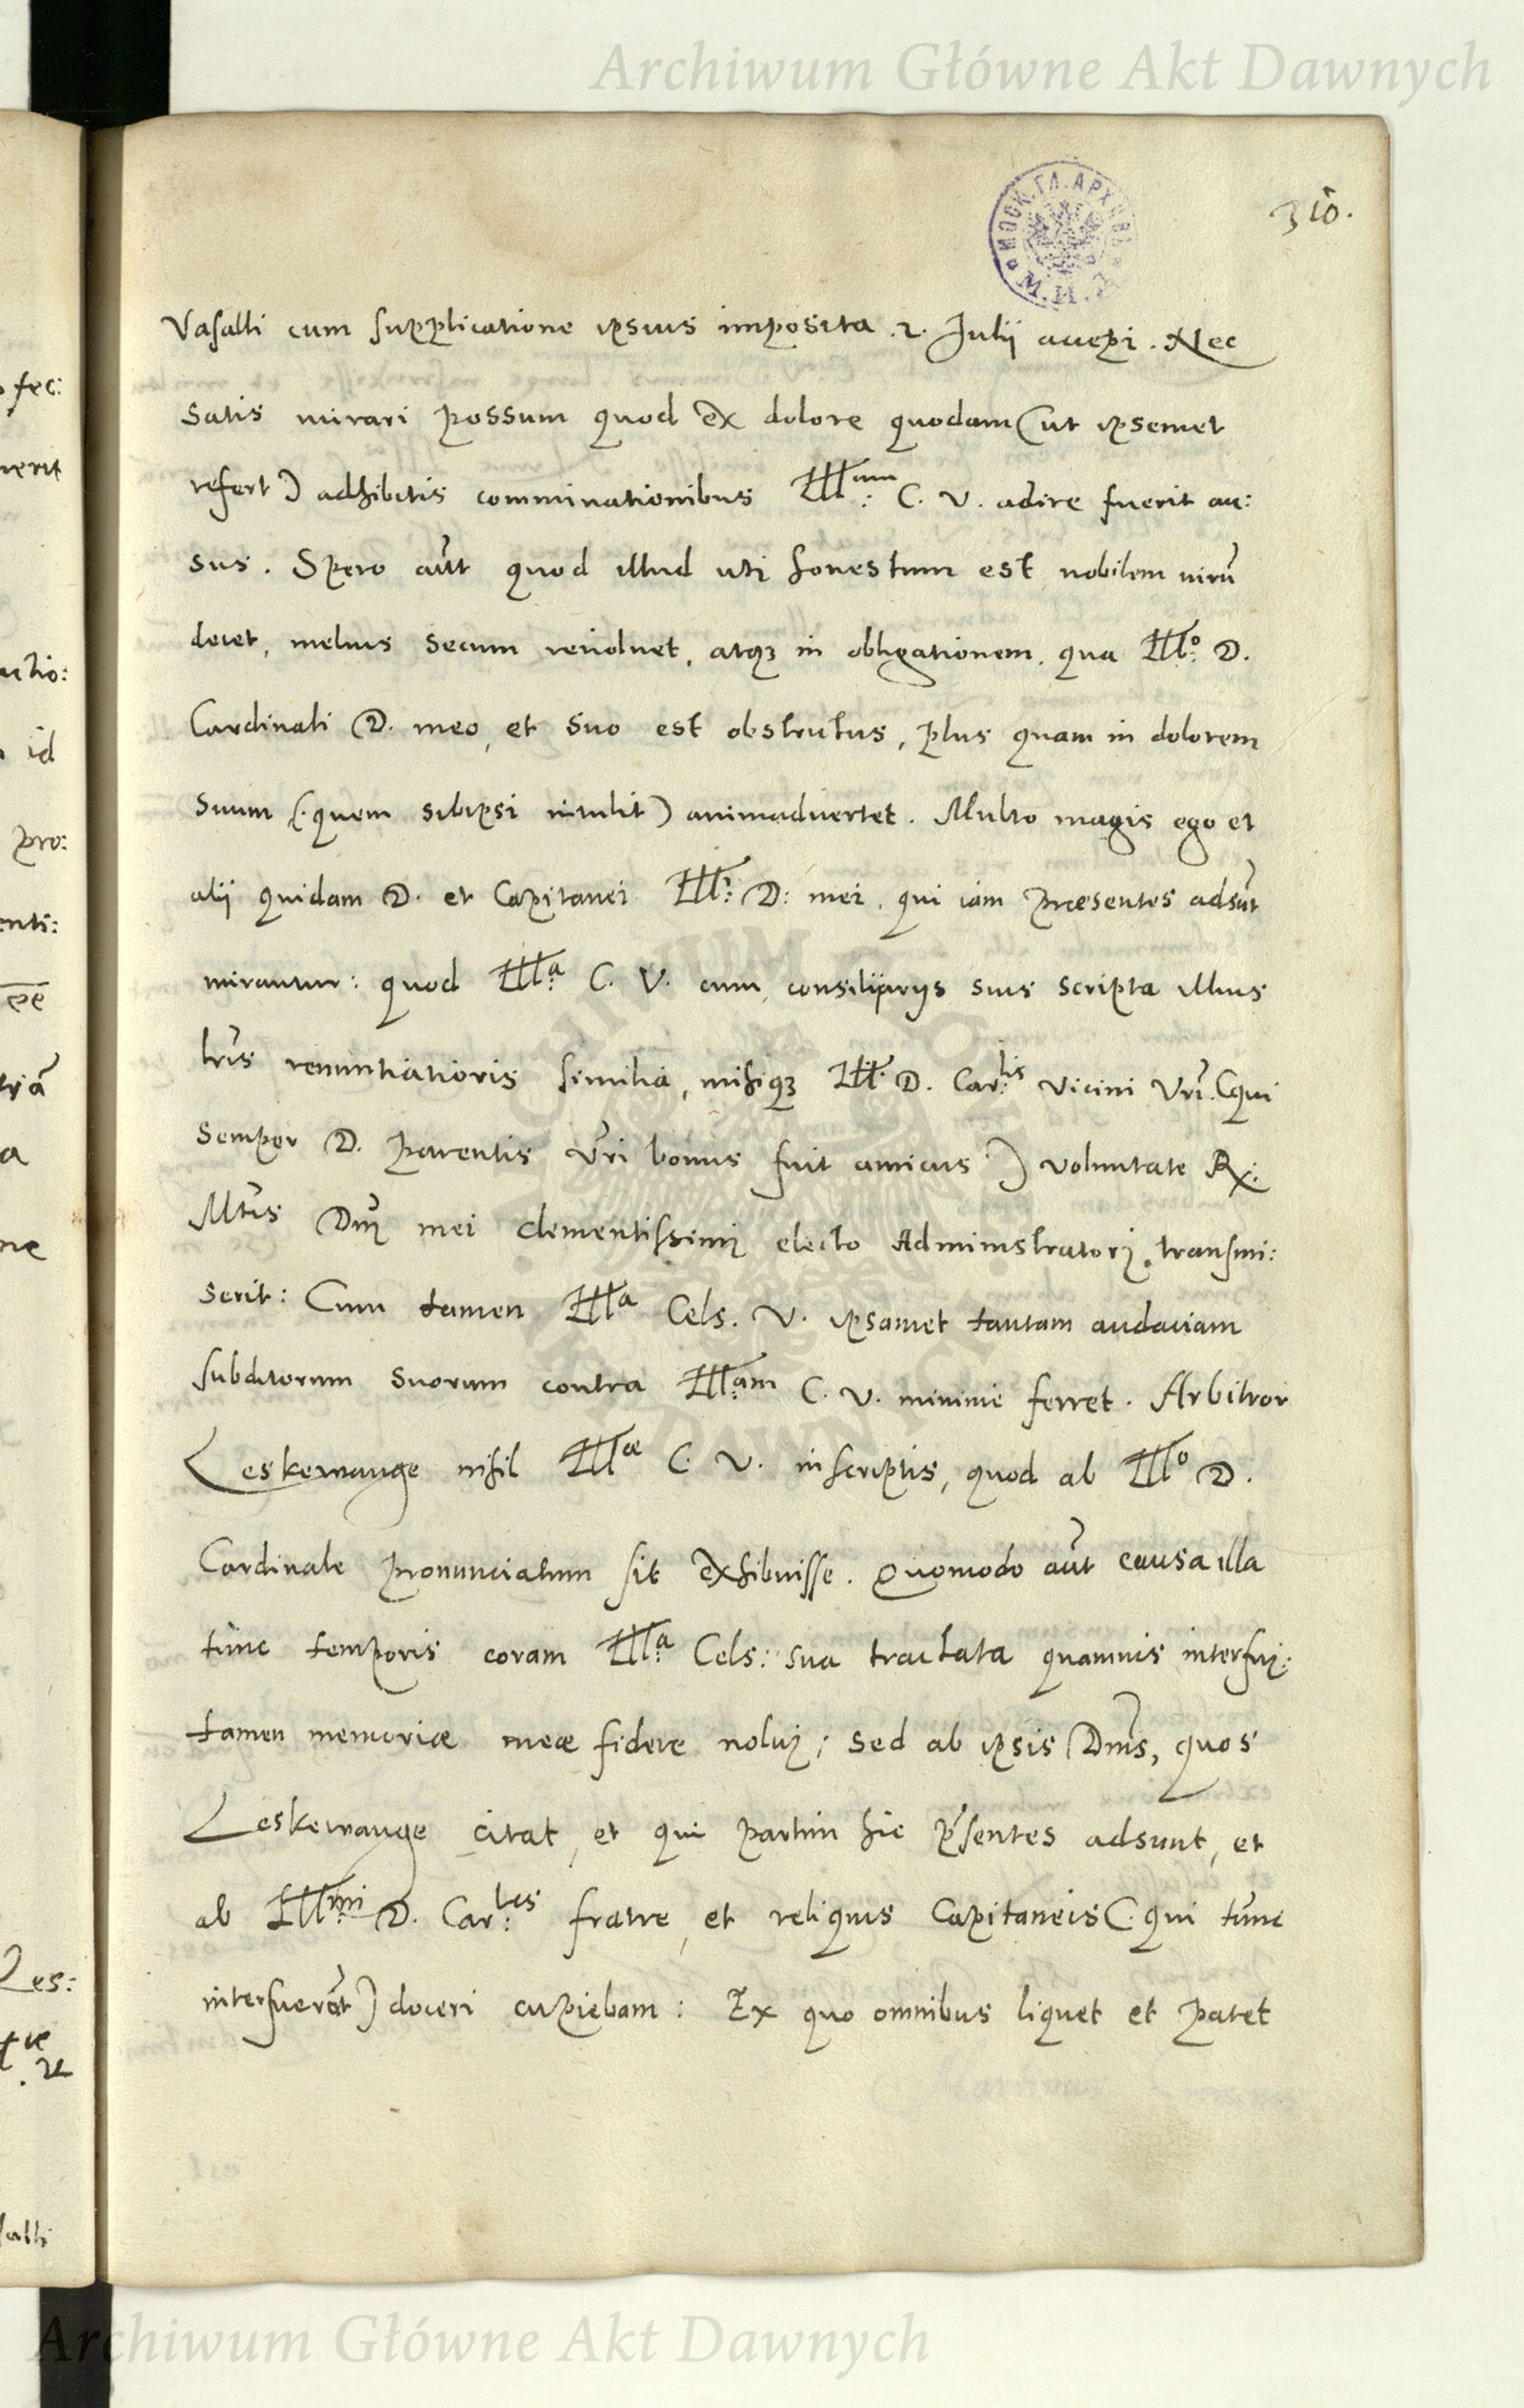 Archiwum Główne Akt Dawnych
310.
МОСК. ГЛ. АРХИВ М.И.Д.
Vasalli cum supplicatione ipsius imposita 2. Julii accepi. Nec
satis mirari possum quod ex dolore quodam (ut ipsemet
refert) adhibitis comminationibus Ill:am C. V. adire fuerit au:
sus. Spero aut quod illud uti honestum est nobilem virū
decet, melius secum reuoluet, atq3 in obligationem, qua Ill:o D.
Cardinali D. meo, et suo est obstrictus, plus quam in dolorem
suum (quem sibipsi intulit) animaduertet. Multo magis ego et
alii quidam D. et Capitanei Ill:i D: mei, qui iam praesentes adsūt
mirantur: quod Ill:a C. V. cum consiliarijs suis scripta illius
lrīs renuntiatioris similia, mihiq3 Ill. D. Car:lis vicini Vrī. (qui
semper D. Parentis Vrī bonus fuit amicus) voluntate R:
Mtīs Dnī mei clementissimi electo Administratori transmi:
serit: Cum tamen Ill:a Cels. V. ipsamet tantam audaciam
subditorum suorum contra Ill:am C. V. minime ferret. Arbitror
Leskewange nihil Ill:ae C. V. in scriptis, quod ab Ill:o D.
Cardinale pronunciatum sit exhibuisse. Quomodo aut causa illa
tunc temporis coram Ill:a Cels: sua tractata quamuis interfui:
tamen memoriae meae fidere nolui; sed ab ipsis Dnīs, quos
Leskewange citat, et qui partim hic p'sentes adsunt, et
ab Ill:mi D. Car:lis fratre, et reliquis Capitaneis (qui tunc
interfuerūt) doceri cupiebam: Ex quo omnibus liquet et patet
Archiwum Główne Akt Dawnych